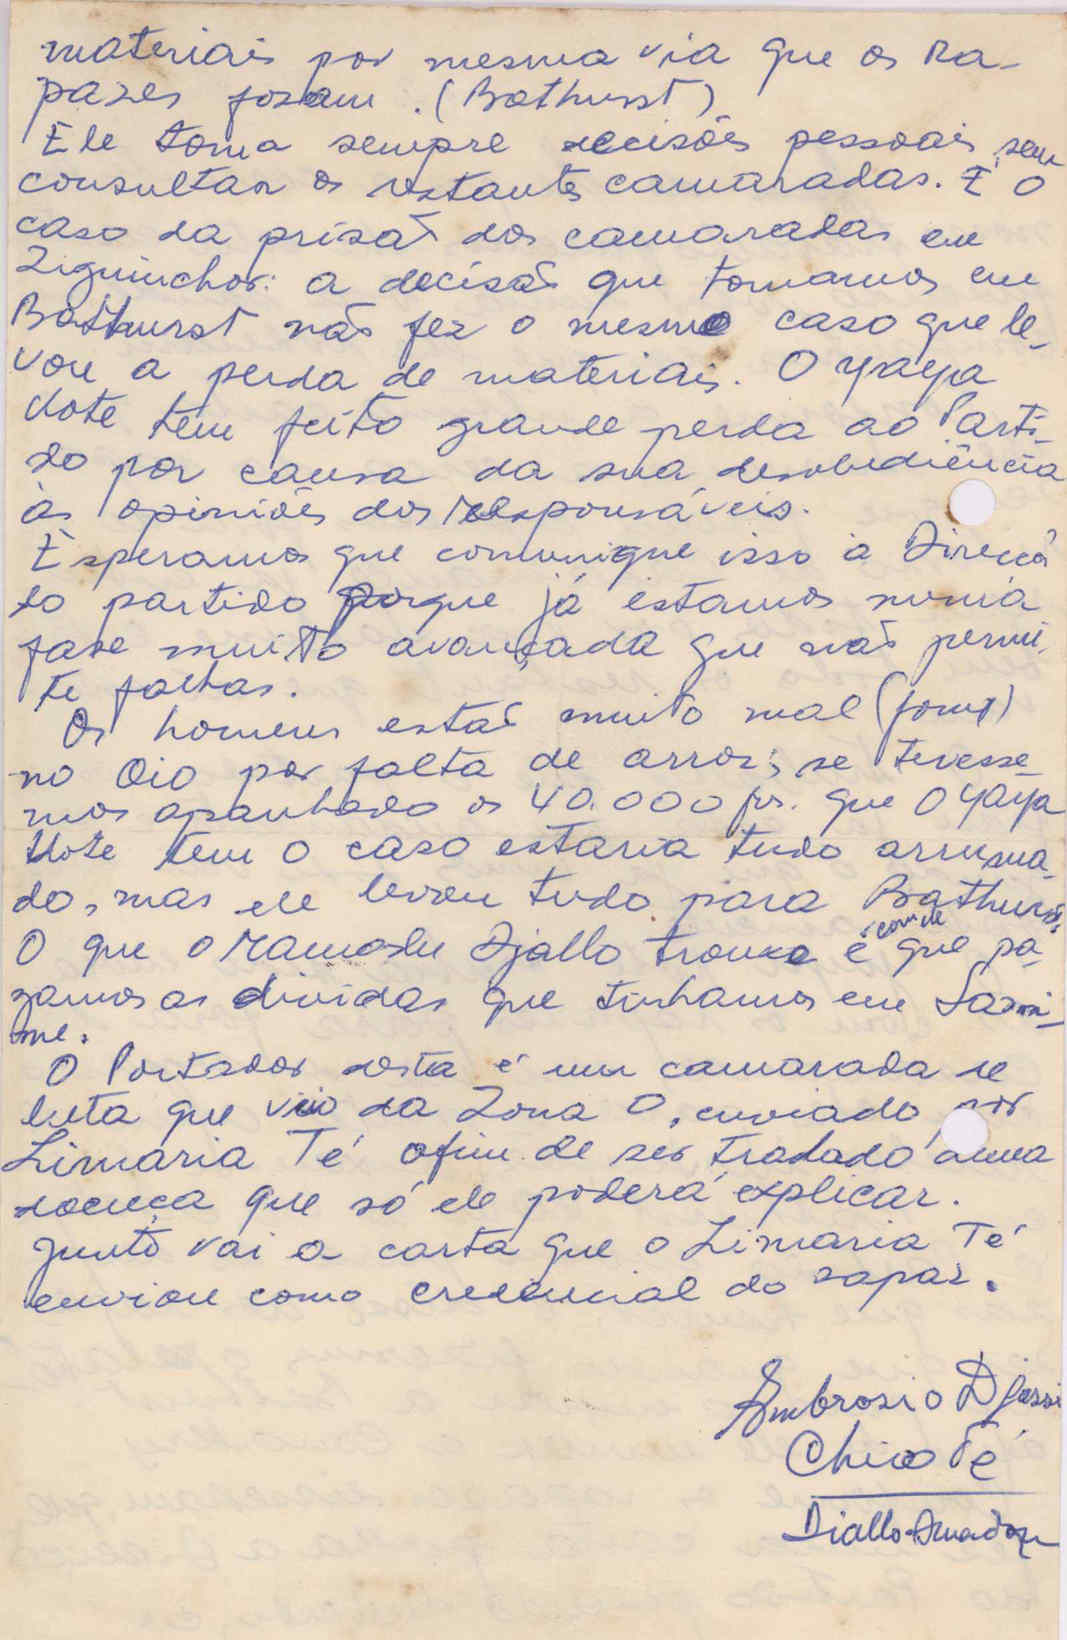 materiais por mesma via que os ra-
pazes foram. (Bathurst)
Ele toma sempre decisões pessoais, sem
consultar os restantes camaradas. É o
caso da prisão dos camaradas em
Ziguinchor: a decisão que tomamos em
Bathurst não fez o mesmo caso que le-
vou a perda de materiais. O Yaya
Koté tem feito grande perda ao Parti-
do por causa da sua desobediência
às opiniões dos responsáveis.
Esperamos que comunique isso à Direcção
do partido porque já estamos numa
fase muito avançada que não permi-
te faltas.
Os homens estão muito mal (fome)
no Oio por falta de arroz; se tevesse-
mos apanhado os 40.000 frs. que O Yaya
Koté tem o caso estaria tudo arruma-
do, mas ele levou tudo para Bathurst.
O que o Mamadu Djallo trouxe é com ele que pa-
gamos as dividas que tinhamos em Samine.
O Portador desta é um camarada de
luta que viu da Zona O, enviado por
Limaria Té afim de ser tratado duma
doença que só ele poderá explicar.
Junto vai a carta que o Limaria Té
enviou como credencial do rapaz.
Ambrosio Djassi
Chico Té
Diallo Amadou